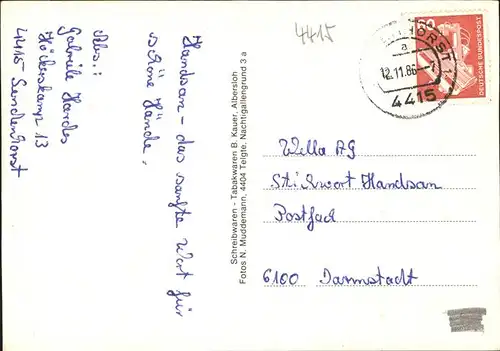 4415
Abs.:
Gabriele Hordes
4415 Sendenhorst
Handsan - das sanfte Wort für
schöne Hände.
Schreibwaren - Tabakwaren B. Kauer, Albersloh
Fotos N. Muddemann, 4404 Telgte, Nachtigallengrund 3 a
HORST 1
a
12.11.86-7
4415
DEUTSCHE BUNDESPOST
Wella AG
Stichwort Handsan
Postfach
6100 Darmstadt